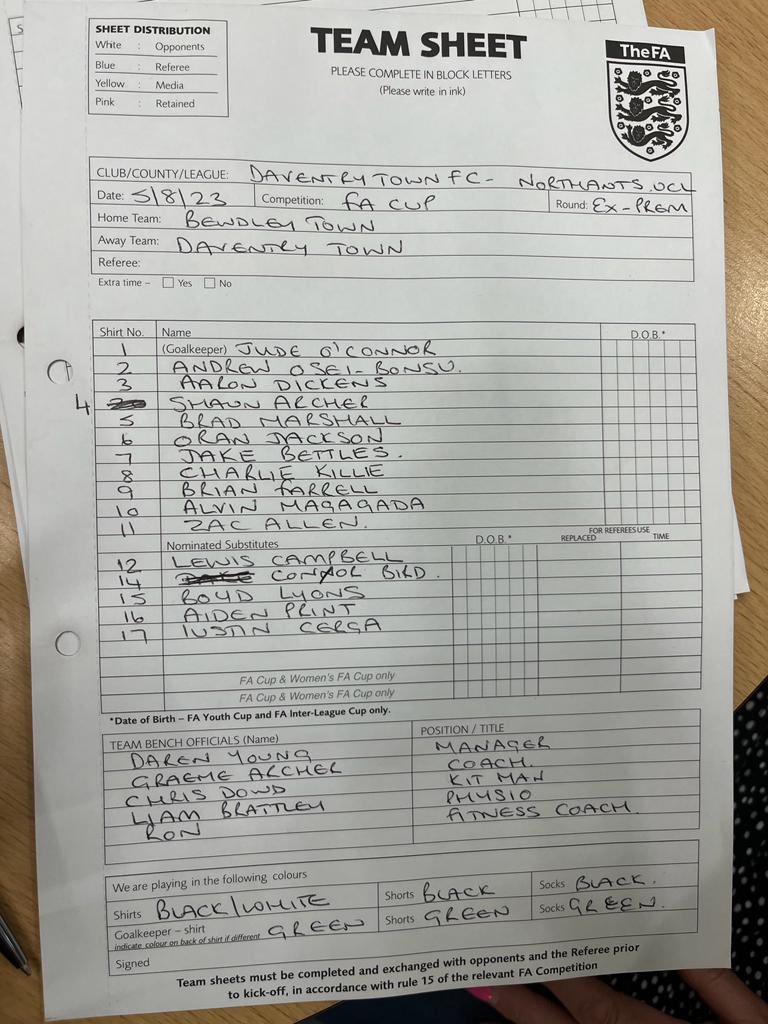 SHEET DISTRIBUTION
White : Opponents
Blue : Referee
Yellow : Media
Pink : Retained
TEAM SHEET
PLEASE COMPLETE IN BLOCK LETTERS
(Please write in ink)
TheFA
CLUB/COUNTY/LEAGUE: DAVENTRY TOWN FC - NORTHANTS. UCL
Date: 5/8/23 Competition: FA CUP Round: EX-PREM
Home Team: BEWDLEY TOWN
Away Team: DAVENTRY TOWN
Referee:
Extra time – Yes No
Shirt No. Name D.O.B.*
1 (Goalkeeper) JUDE O'CONNOR
2 ANDREW OSEI-BONSU.
3 AARON DICKENS
4 SHAUN ARCHER
5 BRAD MARSHALL
6 ORAN JACKSON
7 JAKE BETTLES.
8 CHARLIE KILLIE
9 BRIAN FARRELL
10 ALVIN MAGAGADA
11 ZAC ALLEN.
Nominated Substitutes D.O.B.* FOR REFEREES USE
REPLACED TIME
12 LEWIS CAMPBELL
14 CONNOR BIRD.
15 BOYD LYONS
16 AIDEN PRINT
17 IUSTIN CERGA
FA Cup & Women's FA Cup only
FA Cup & Women's FA Cup only
*Date of Birth – FA Youth Cup and FA Inter-League Cup only.
TEAM BENCH OFFICIALS (Name) POSITION / TITLE
DAREN YOUNG MANAGER
GRAEME ARCHER COACH.
CHRIS DOWD KIT MAN
LIAM BRATTLEY PHYSIO
RON FITNESS COACH.
We are playing in the following colours
Shirts BLACK/WHITE Shorts BLACK Socks BLACK.
Goalkeeper – shirt GREEN Shorts GREEN Socks GREEN.
indicate colour on back of shirt if different
Signed
Team sheets must be completed and exchanged with opponents and the Referee prior
to kick-off, in accordance with rule 15 of the relevant FA Competition